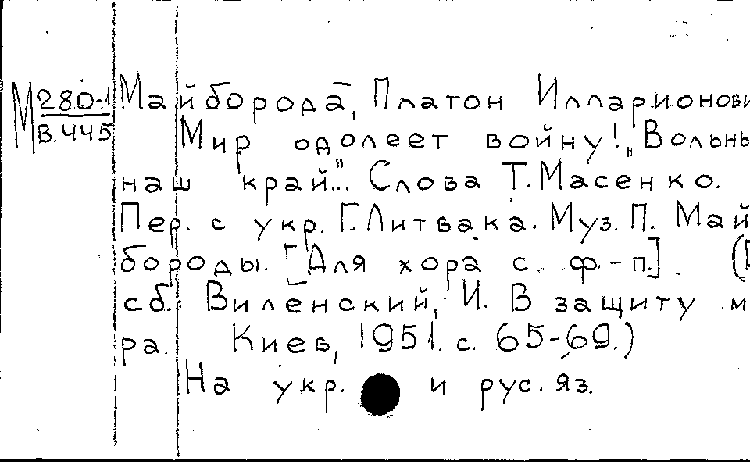 М 280-1
В.445
Майборода, Платон Илларионови
Мир одолеет войну! „Вольны
наш край"... Слова Т.Масенко.
Пер. с укр. Г.Литвака. Муз. П. Май
бороды. [Для хора с ф.-п.]. (В
сб. Виленский, И. В защиту м
ра. Киев, 1951. с. 65-69.)
На укр. и рус. яз.